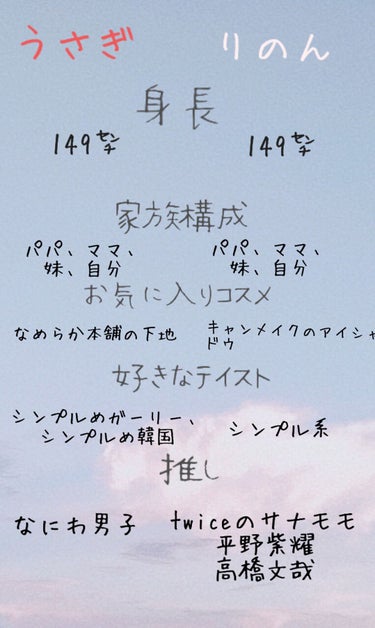 うさぎ りのん
身長
149㌢ 149㌢
家族構成
パパ、ママ、 パパ、ママ、
妹、自分 妹、自分
お気に入りコスメ
なめらか本舗の下地 キャンメイクのアイシャ
ドウ
好きなテイスト
シンプルめガーリー、
シンプルめ韓国 シンプル系
推し
なにわ男子 twiceのサナモモ
平野紫耀
高橋文哉